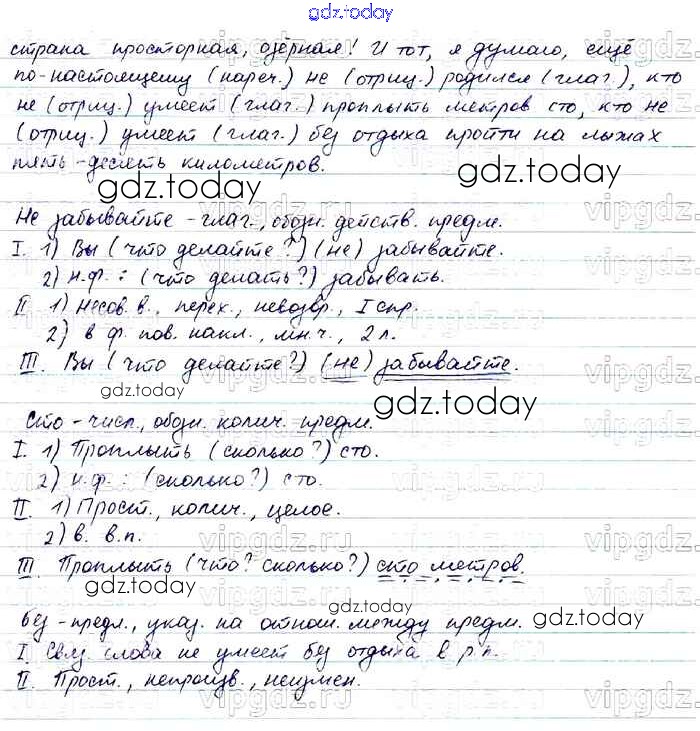 gdz.today
страна просторная, озёрная! И тот, я думаю, ещё
по-настоящему (нареч.) не (отриц.) родился (глаг.), кто
не (отриц.) умеет (глаг.) проплыть метров сто, кто не
(отриц.) умеет (глаг.) без отдыха пройти на лыжах
пять-десять километров.
gdz.today gdz.today
Не забывайте - глаг., обозн. действ. предм.
I. 1) Вы (что делайте?) (не) забывайте.
2) н.ф.: (что делать?) забывать.
II 1) Несов. в., перех., невозвр., I спр.
2) в ф. пов. накл., мн.ч., 2 л.
III. Вы (что делайте?) (не) забывайте.
gdz.today gdz.today
Сто - числ., обозн. колич. предм.
I. 1) Проплыть (сколько?) сто.
2) н.ф.: (сколько?) сто.
II. 1) Прост., колич., целое.
2) в. в.п.
III. Проплыть (что? сколько?) сто метров.
gdz.today gdz.today gdz.today
Без - предл., указ. на отнош. между предм.
I. Связ. слова не умеет без отдыха в р.п.
II. Прост., непроизв., неизмен.
vipgdz.ru